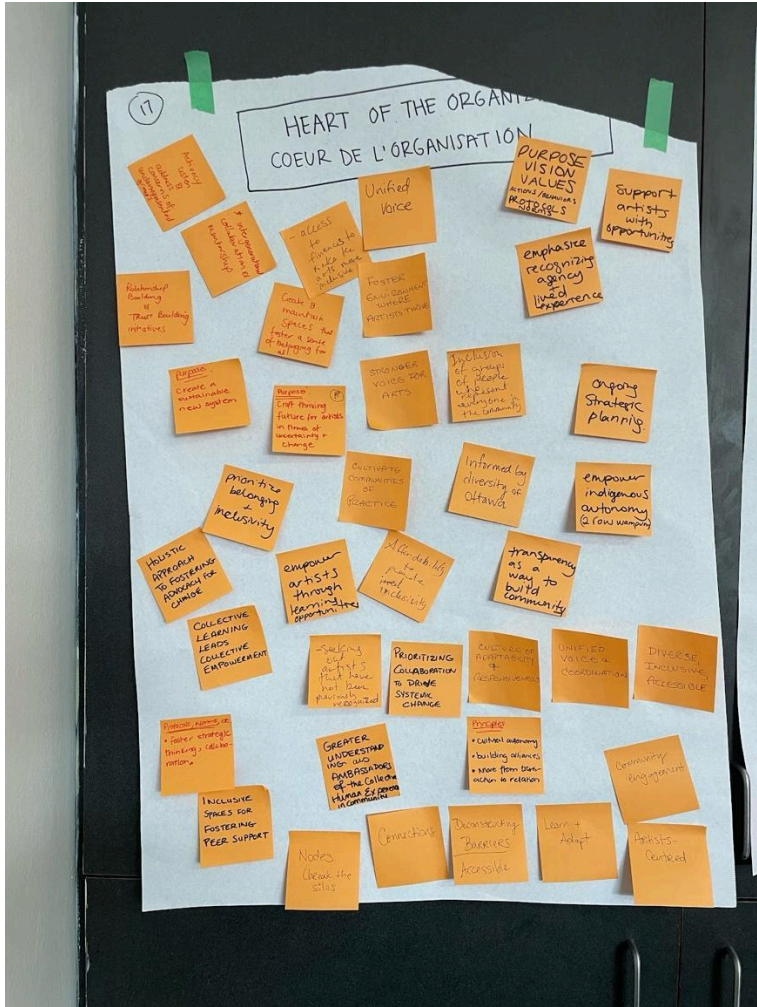 17
HEART OF THE ORGANIZ
COEUR DE L'ORGANISATION
Advocacy
address
concerns of
underrepresented
intergenerational
collaboration &
mentorship
- access
to
finances to
make the
arts more
inclusive
Unified
Voice
PURPOSE
VISION
VALUES
ACTIONS/BEHAVIORS
PROTOCOLS
NORMS
Support
artists
with
opportunities
Relationship
Building
&
Trust Building
initiatives
Create &
maintain
Spaces that
foster a sense
of belonging for
all
FOSTER
ENVIRONMENT
WHERE
ARTISTS THRIVE
emphasize
recognizing
agency
+
lived experience
Purpose
Create a
sustainable
new system
Purpose
Craft thriving
future for artists
in times of
uncertainty +
change
STRONGER
VOICE FOR
ARTS
Inclusion
of groups
of people
represent
everyone in
the community
ongoing
Strategic
planning.
prioritize
belonging
+
inclusivity
CULTIVATE
COMMUNITIES
OF
PRACTICE
Informed by
diversity of
Ottawa
empower
indigenous
autonomy
(2 row wampum)
HOLISTIC
APPROACH
TO FOSTERING
ADVOCACY FOR
CHANGE
empower
artists
through
learning
opportunities
Affordability
to
promote
inclusivity
transparency
as a
way to
build
community
COLLECTIVE
LEARNING
LEADS
COLLECTIVE
EMPOWERMENT
-Seeking
out
artists
that have
not been
previously
recognized
PRIORITIZING
COLLABORATION
TO DRIVE
SYSTEMIC
CHANGE
CULTURE OF
ADAPTABILITY
&
RESPONSIVENESS
UNIFIED
VOICE &
COORDINATION
DIVERSE,
INCLUSIVE,
ACCESSIBLE
Protocols, Norms, or
• foster strategic
thinking, collabo-
ration.
GREATER
UNDERSTAND
ING as
AMBASSADORS
of the Collective
Human Experience
in community
Principles
• cultural autonomy
• building alliances
• Move from trans-
action to relation
Community
engagement
INCLUSIVE
SPACES FOR
FOSTERING
PEER SUPPORT
Nodes
break the
silos
Connections
Deconstructing
BARRIERS
Accessible
Learn +
Adapt
Artists-
Centred